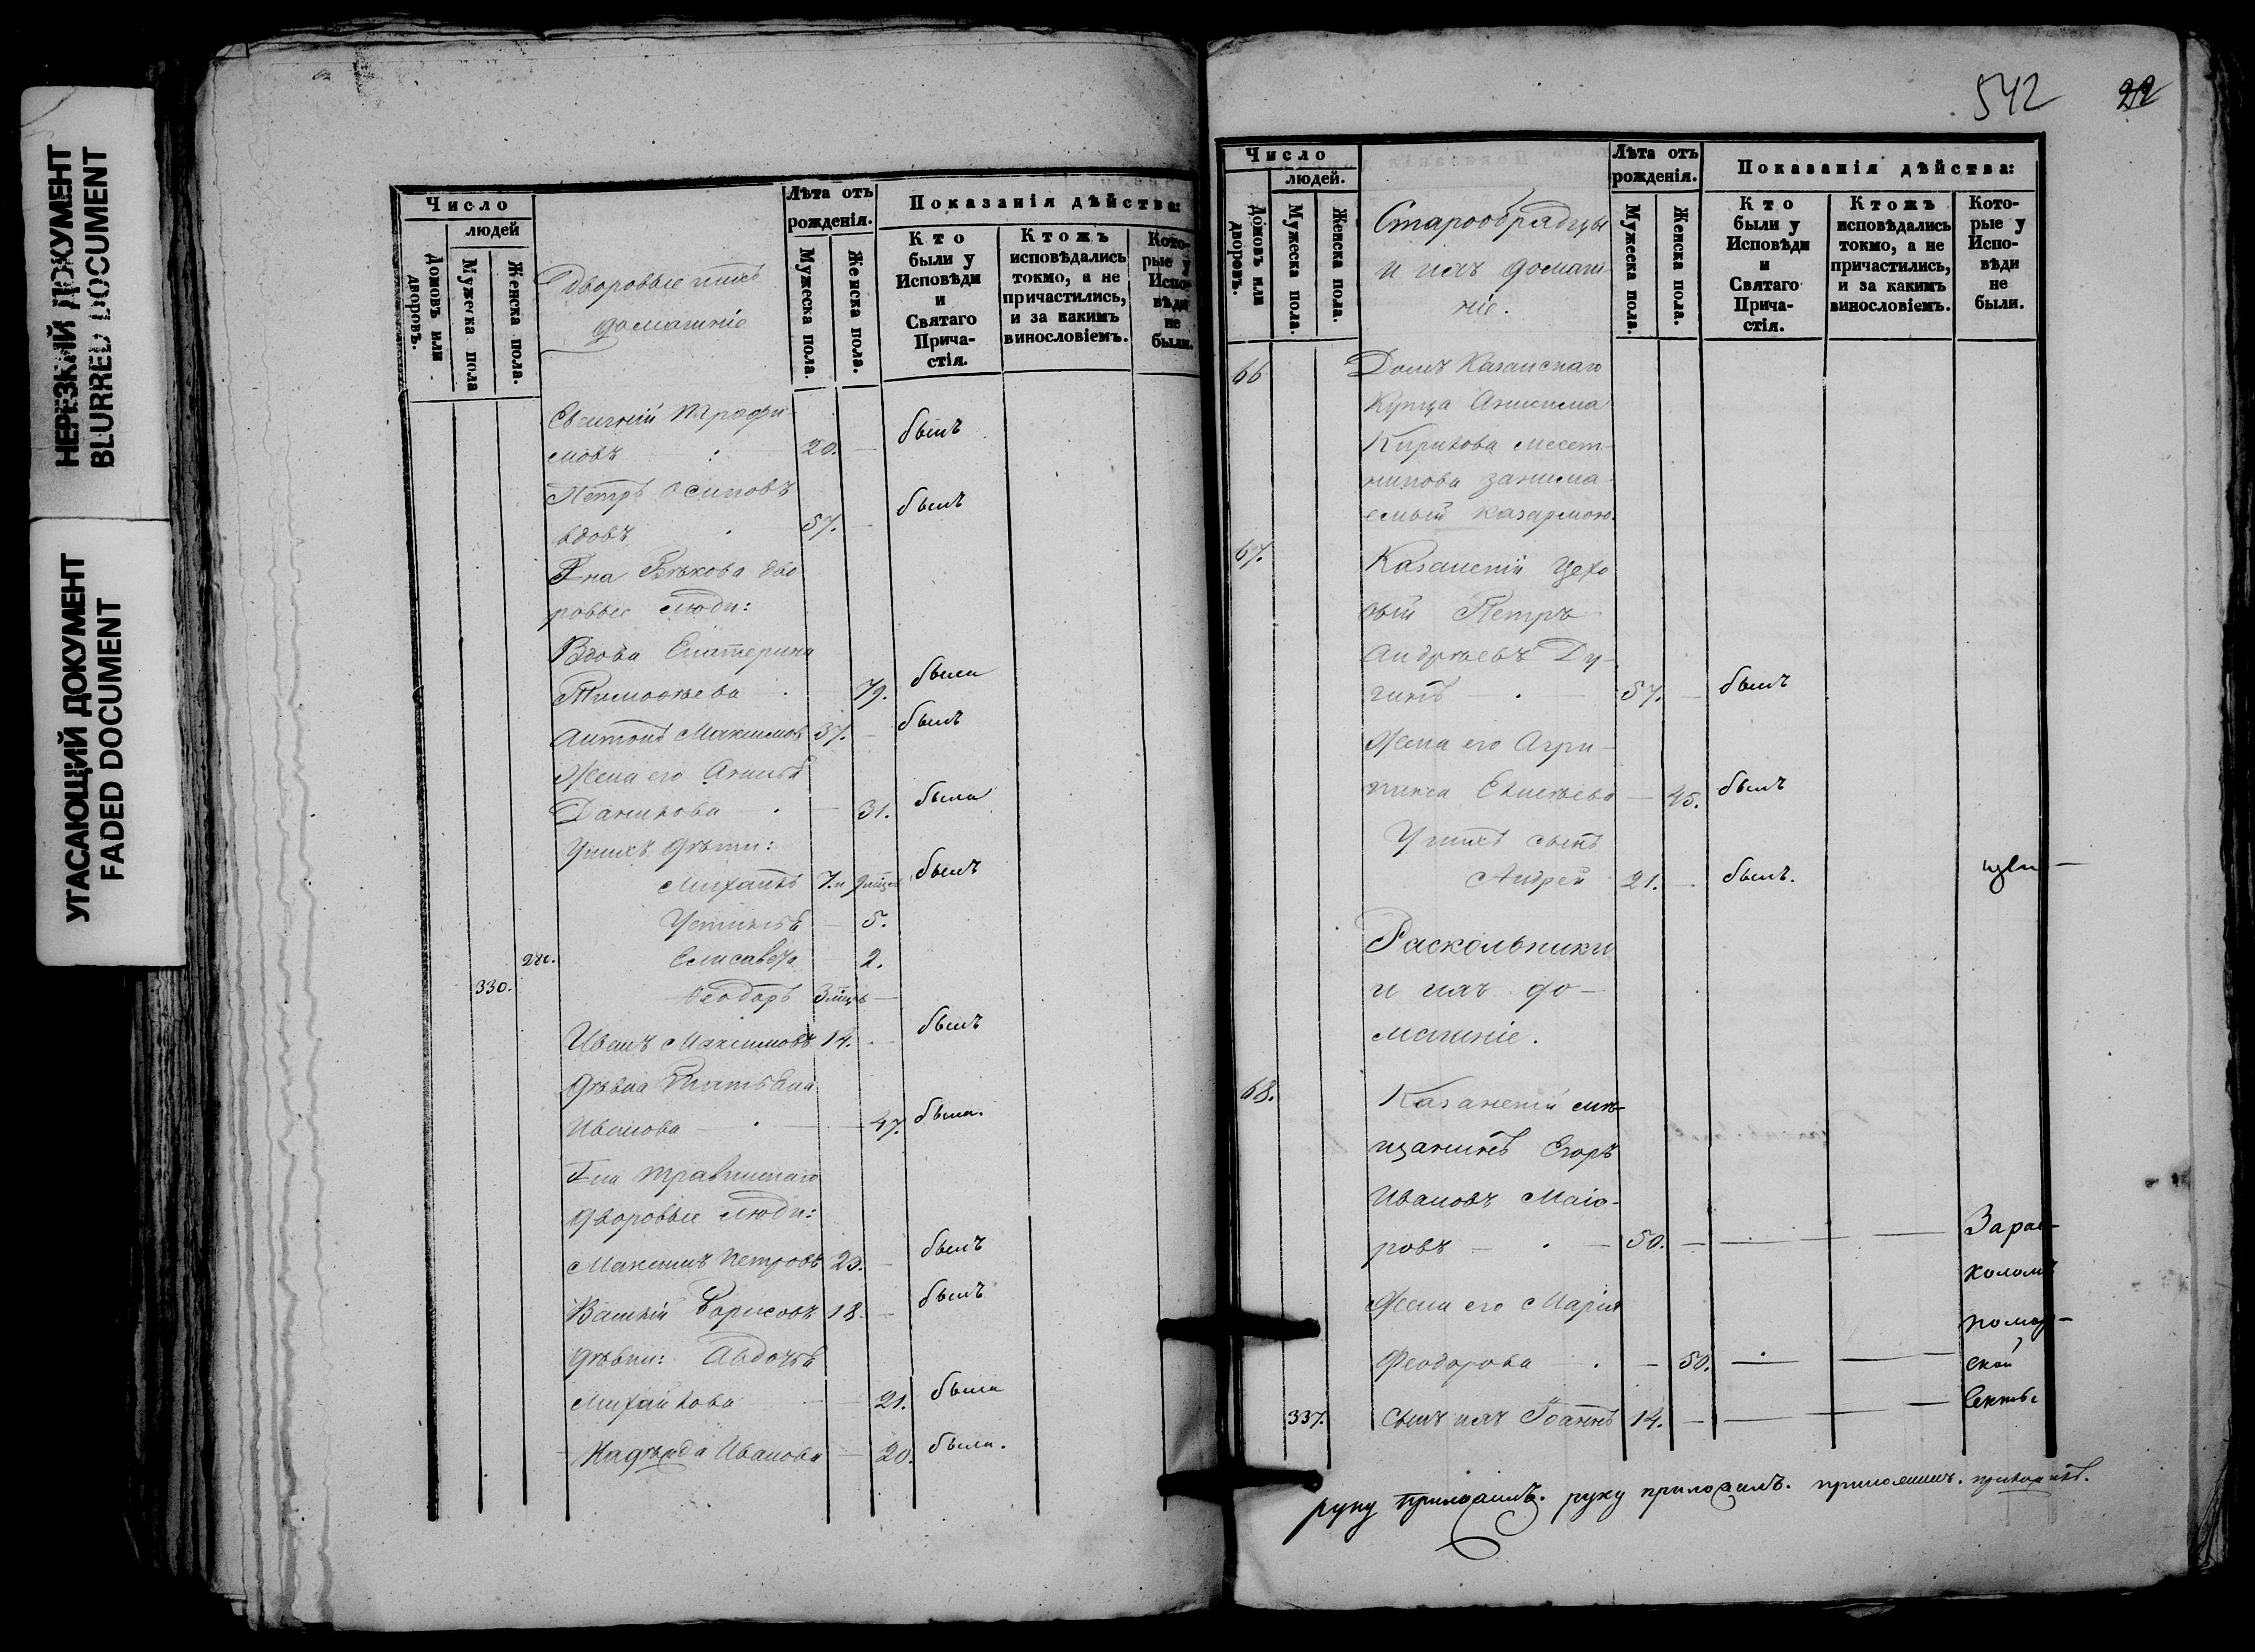 НЕРЕЗКИЙ ДОКУМЕНТ
BLURRED DOCUMENT
УГАСАЮЩИЙ ДОКУМЕНТ
FADED DOCUMENT
Число
людей
Домовъ или дворовъ.
Мужеска пола
Женска пола.
Дворовые ихъ
домашніе
Лѣта отъ рожденія.
Мужеска пола.
Женска пола.
Показанія дѣйства:
Кто были у Исповѣди и Святаго Прича-стія.
Ктожъ исповѣдались токмо, а не причастились, и за какимъ винословіемъ.
Кото-рые у Испо-вѣди не были.
Евгеній Трофи
мовъ 20. — былъ
Петръ Осиповъ
вдовъ 57. — былъ
Г-на дво
ровые люди:
Вдова Екатерина
Тимоѳеева 79. была
Антонъ Максимовъ 37. — былъ
Жена его Акилина
Данилова — 31. была
У нихъ дѣти:
Михаилъ 7. и былъ
Устинья — 5.
Елисавета — 2.
330. Ѳеодоръ 3 мѣць —
Иванъ Максимовъ 14. — былъ
дѣвка Татьяна
Иванова — 47. была.
Г-на
дворовые люди:
Максимъ Петровъ 23. — былъ
Василій Борисовъ 18. — былъ
дѣвки: Авдотья
Михайлова — 21. была
Надежда Иванова — 20. была.
542 22
Число
людей.
Домовъ или дворовъ.
Мужеска пола.
Женска пола.
Старообрядцы
и ихъ домаш-
ніе.
Лѣта отъ рожденія.
Мужеска пола.
Женска пола.
Показанія дѣйства:
Кто были у Исповѣди и Святаго Прича-стія.
Ктожъ исповѣдались токмо, а не причастились, и за какимъ винословіемъ.
Кото-рые у Испо-вѣди не были.
66 Домъ Казанскаго
Купца Анисима
Кирилова Месет-
никова занима-
емый казармою.
67. Казанскій Цехо
вый Петръ
Андреевъ Ду-
гинъ 57. — былъ
Жена его Агри-
пина Елисѣева — 45. былъ
У нихъ сынъ
Андрей 21. — былъ.
Раскольники
и ихъ до-
машніе.
68. Казанскій мѣ-
щанинъ Егоръ
Ивановъ Маіо-
ровъ — 50. — Зарас-
коломъ
Жена его Марія
помор-
Феодорова — 50. — ской
337. Сынъ ихъ Іоаннъ 14. — секты
руку приложилъ. руку приложилъ.